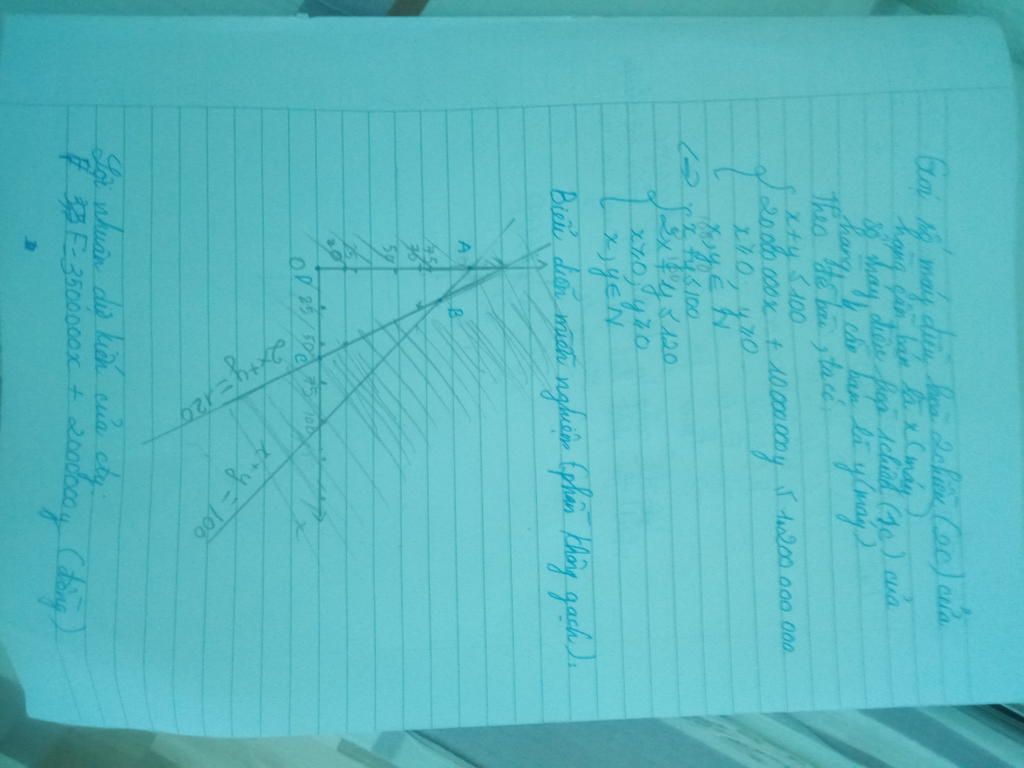 Gọi số máy điều hoà 2 chiều (2c) của
hãng cần bán là x (máy)
số máy điều hoà 1 chiều (1c) của
hãng cần bán là y (máy)
Theo đề bài, ta có:
x + y ≤ 100
20000000x + 10000000y ≤ 1200 000 000
x ≥ 0, y ≥ 0
x, y ∈ N
⇔ x + y ≤ 100
2x + y ≤ 120
x ≥ 0, y ≥ 0
x, y ∈ N
Biểu diễn miền nghiệm (phần không gạch):
A
B
75
50
25
20
O
25
50
C
75
100
x
2x + y = 120
x + y = 100
Lợi nhuận dự kiến của
F = 3500000x + 2000000y (đồng)